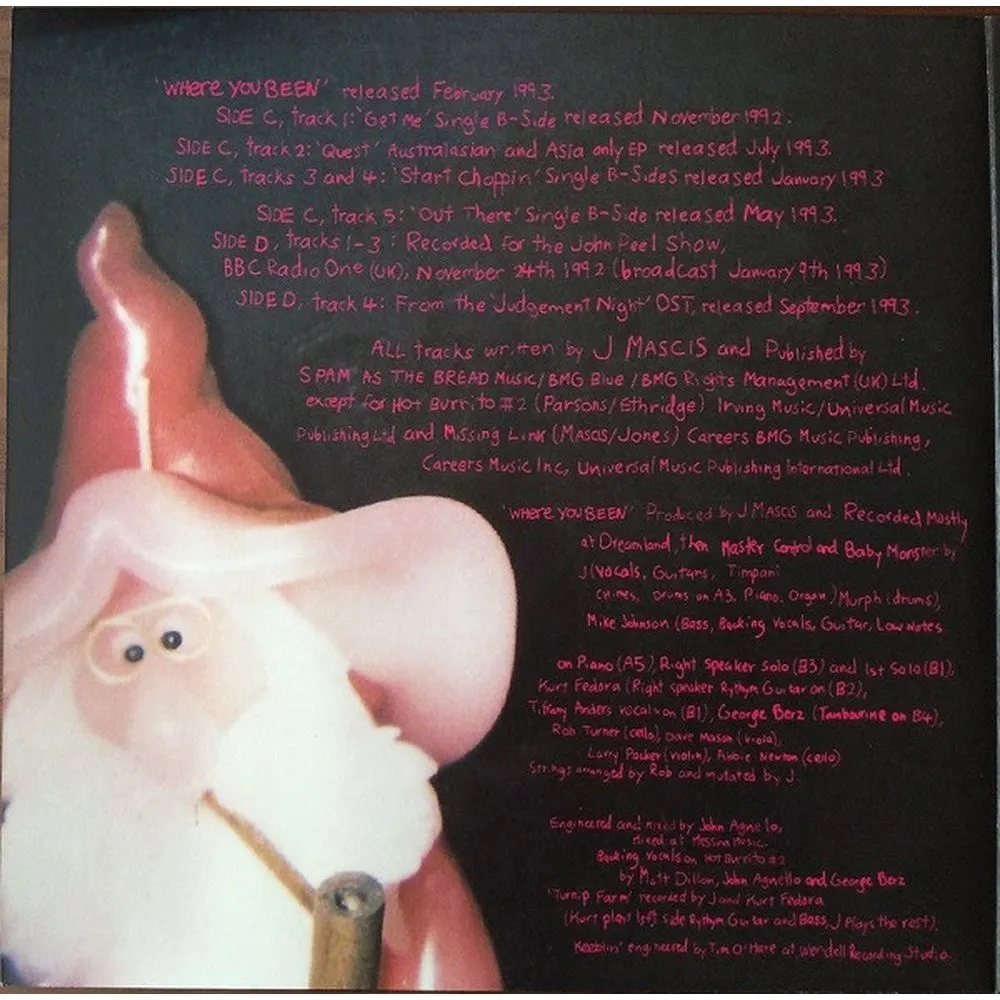 'WHERE YOU BEEN' released February 1993.
SIDE C, track 1: 'Get Me' Single B-Side released November 1992.
SIDE C, track 2: 'Quest' Australasian and Asia only EP released July 1993.
SIDE C, tracks 3 and 4: 'Start Choppin' Single B-Sides released January 1993
SIDE C, track 5: 'Out There' Single B-Side released May 1993.
SIDE D, tracks 1-3: Recorded for the John Peel Show,
BBC Radio One (UK), November 24th 1992 (broadcast January 9th 1993)
SIDE D, track 4: From the 'Judgement Night' OST, released September 1993.
ALL tracks written by J MASCIS and Published by
SPAM AS THE BREAD Music/BMG Blue/BMG Rights Management (UK) Ltd.
except for Hot Burrito #2 (Parsons/Ethridge) Irving Music/Universal Music
Publishing Ltd and Missing Link (Mascis/Jones) Careers BMG Music Publishing,
Careers Music Inc, Universal Music Publishing International Ltd.
'WHERE YOU BEEN' Produced by J MASCIS and Recorded Mostly
at Dreamland, then Master Control and Baby Monster by
J (Vocals, Guitars, Timpani
Chimes, Drums on A3, Piano, Organ) Murph (drums),
Mike Johnson (Bass, Backing Vocals, Guitar, Low Notes
on Piano (A5), Right Speaker Solo (B3) and 1st Solo (B1),
Kurt Fedora (Right speaker Rythym Guitar on (B2),
Tiffany Anders vocals on (B1), George Berz (Tambourine on B4),
Rob Turner (cello), Dave Mason (viola),
Larry Packer (violin), Abbie Newton (cello)
Strings arranged by Rob and mutated by J.
Engineered and mixed by John Agnello,
Mixed at Messina Music.
Backing Vocals on Hot Burrito #2
by Matt Dillon, John Agnello and George Berz
'Turnip Farm' recorded by J and Kurt Fedora
(Kurt plays left side Rythym Guitar and Bass, J Plays the rest).
Keeblin' engineered by Tim O'Hare at Wendell Recording Studio.